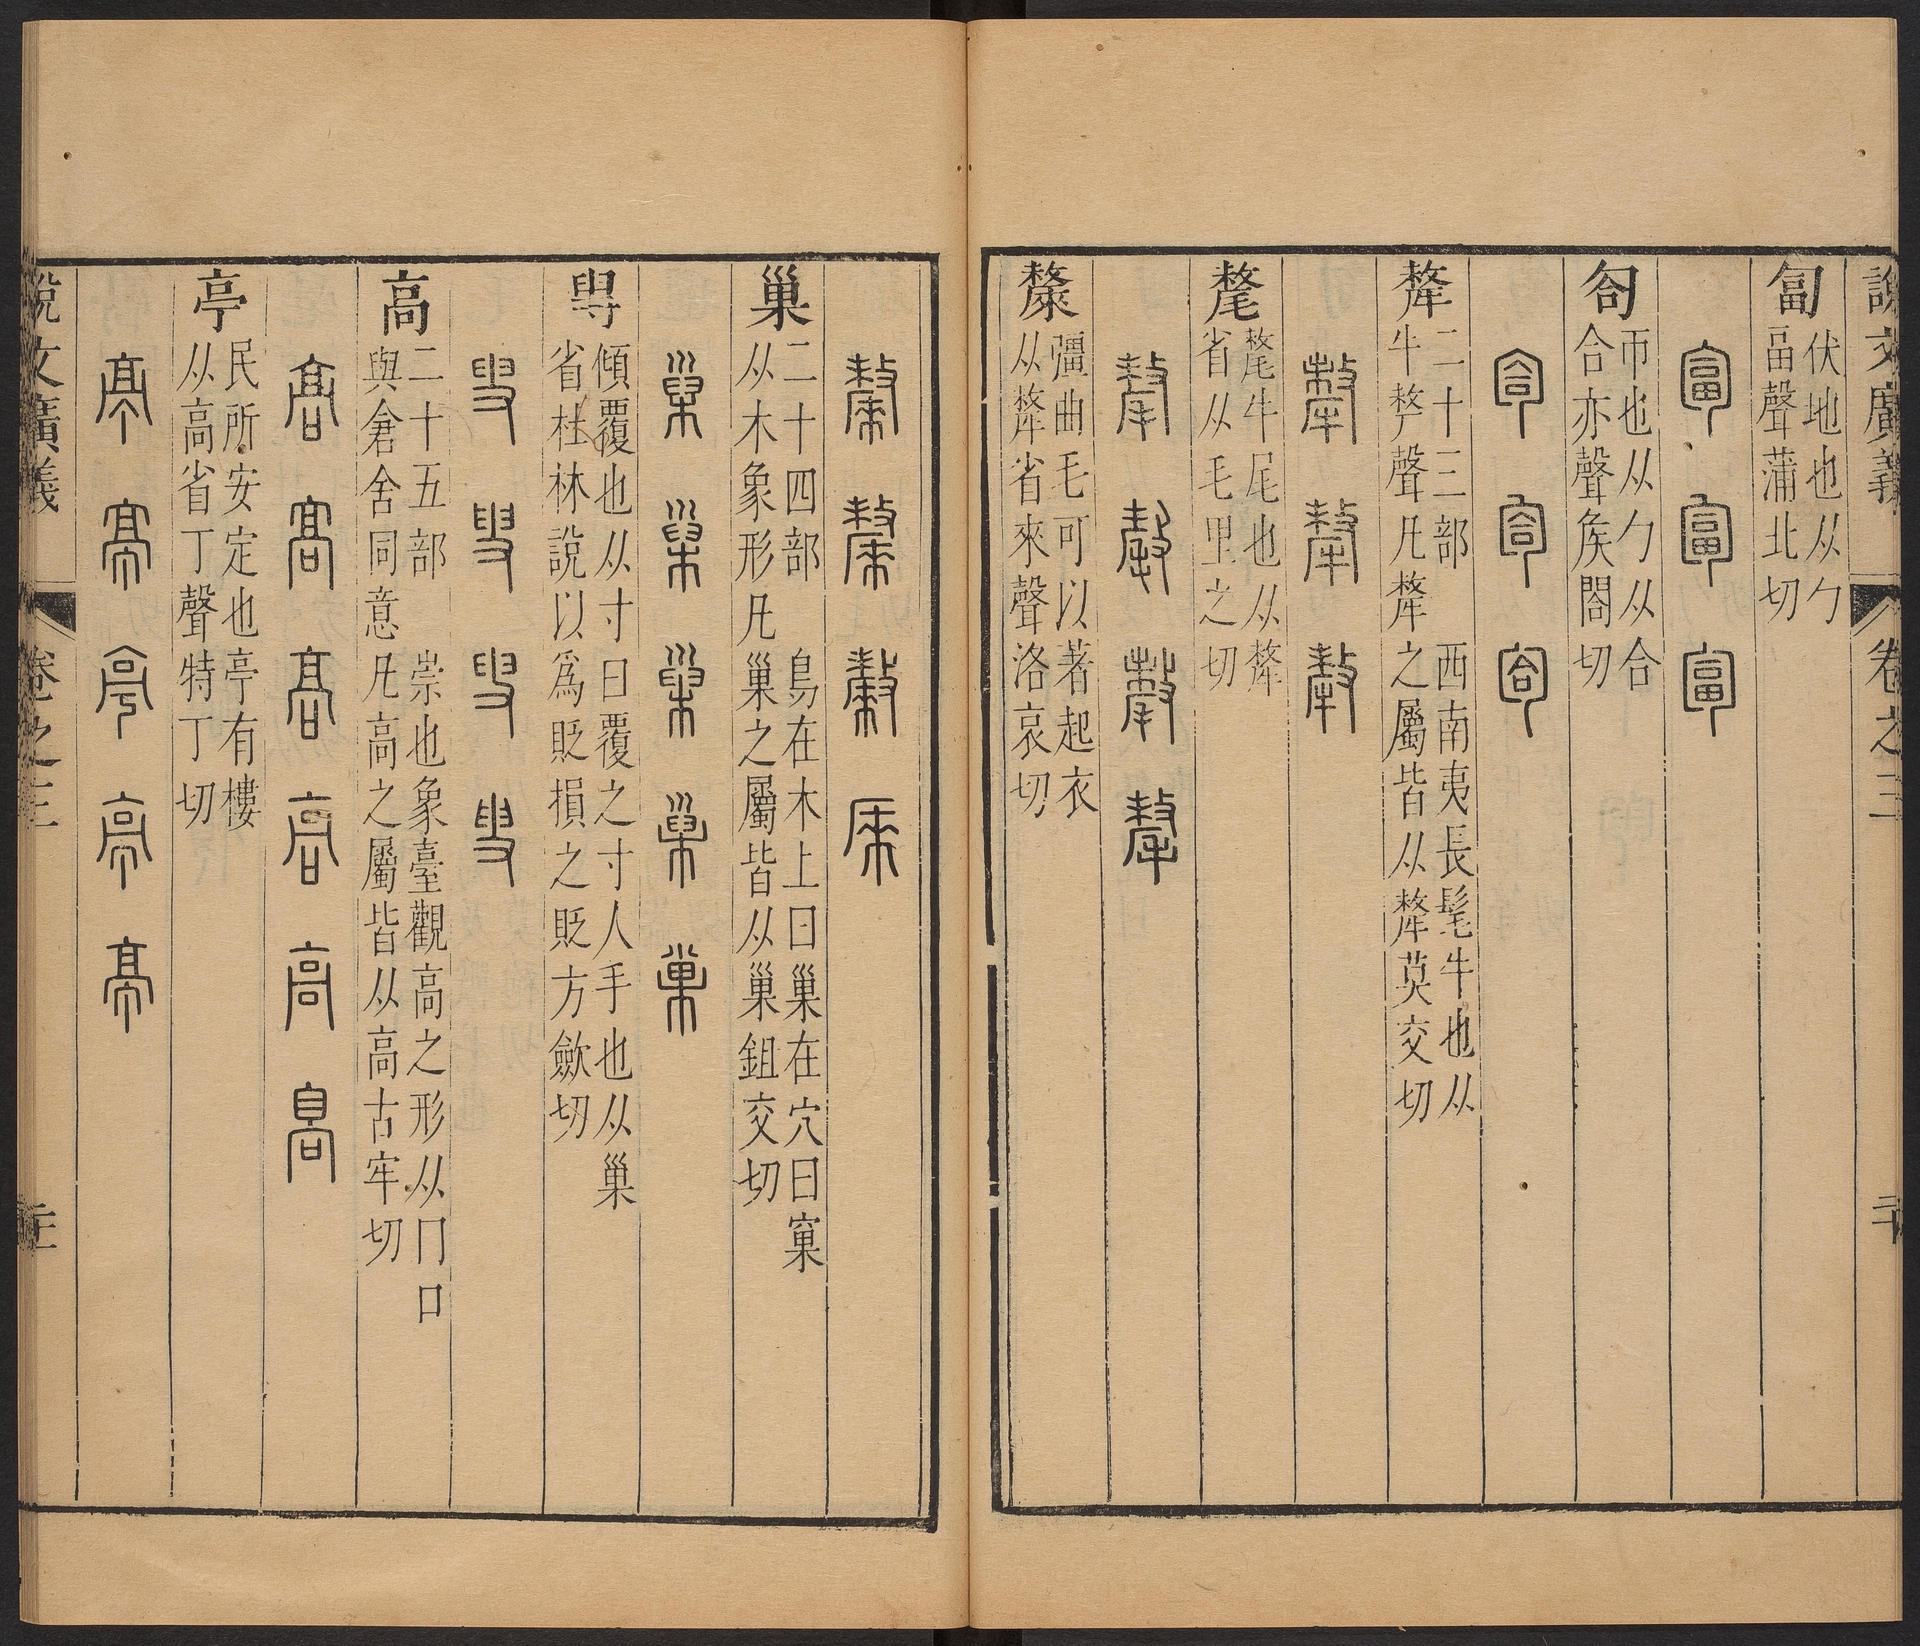 說文廣義 卷之三
匐 伏地也从勹
畐聲蒲北切
匐匐匐
匌 帀也从勹从合
合亦聲矦閤切
匌匌匌
犛 二十三部 西南夷長髦牛也从
牛𠩺聲凡犛之屬皆从犛莫交切
犛犛犛
氂 氂牛尾也从犛
省从毛里之切
氂氂氂氂
斄 彊曲毛可以著起衣
从犛省來聲洛哀切
斄斄斄
巢 二十四部 鳥在木上曰巢在穴曰窠
从木象形凡巢之屬皆从巢鉏交切
巢巢巢巢巢
傾覆也从寸臼覆之寸人手也从巢
省杜林說以爲貶損之貶方歛切
高 二十五部 崇也象臺觀高之形从冂口
與倉舍同意凡高之屬皆从高古牢切
高高高高高高
亭 民所安定也亭有樓
从高省丁聲特丁切
亭亭亭亭亭
說文廣義 卷之三